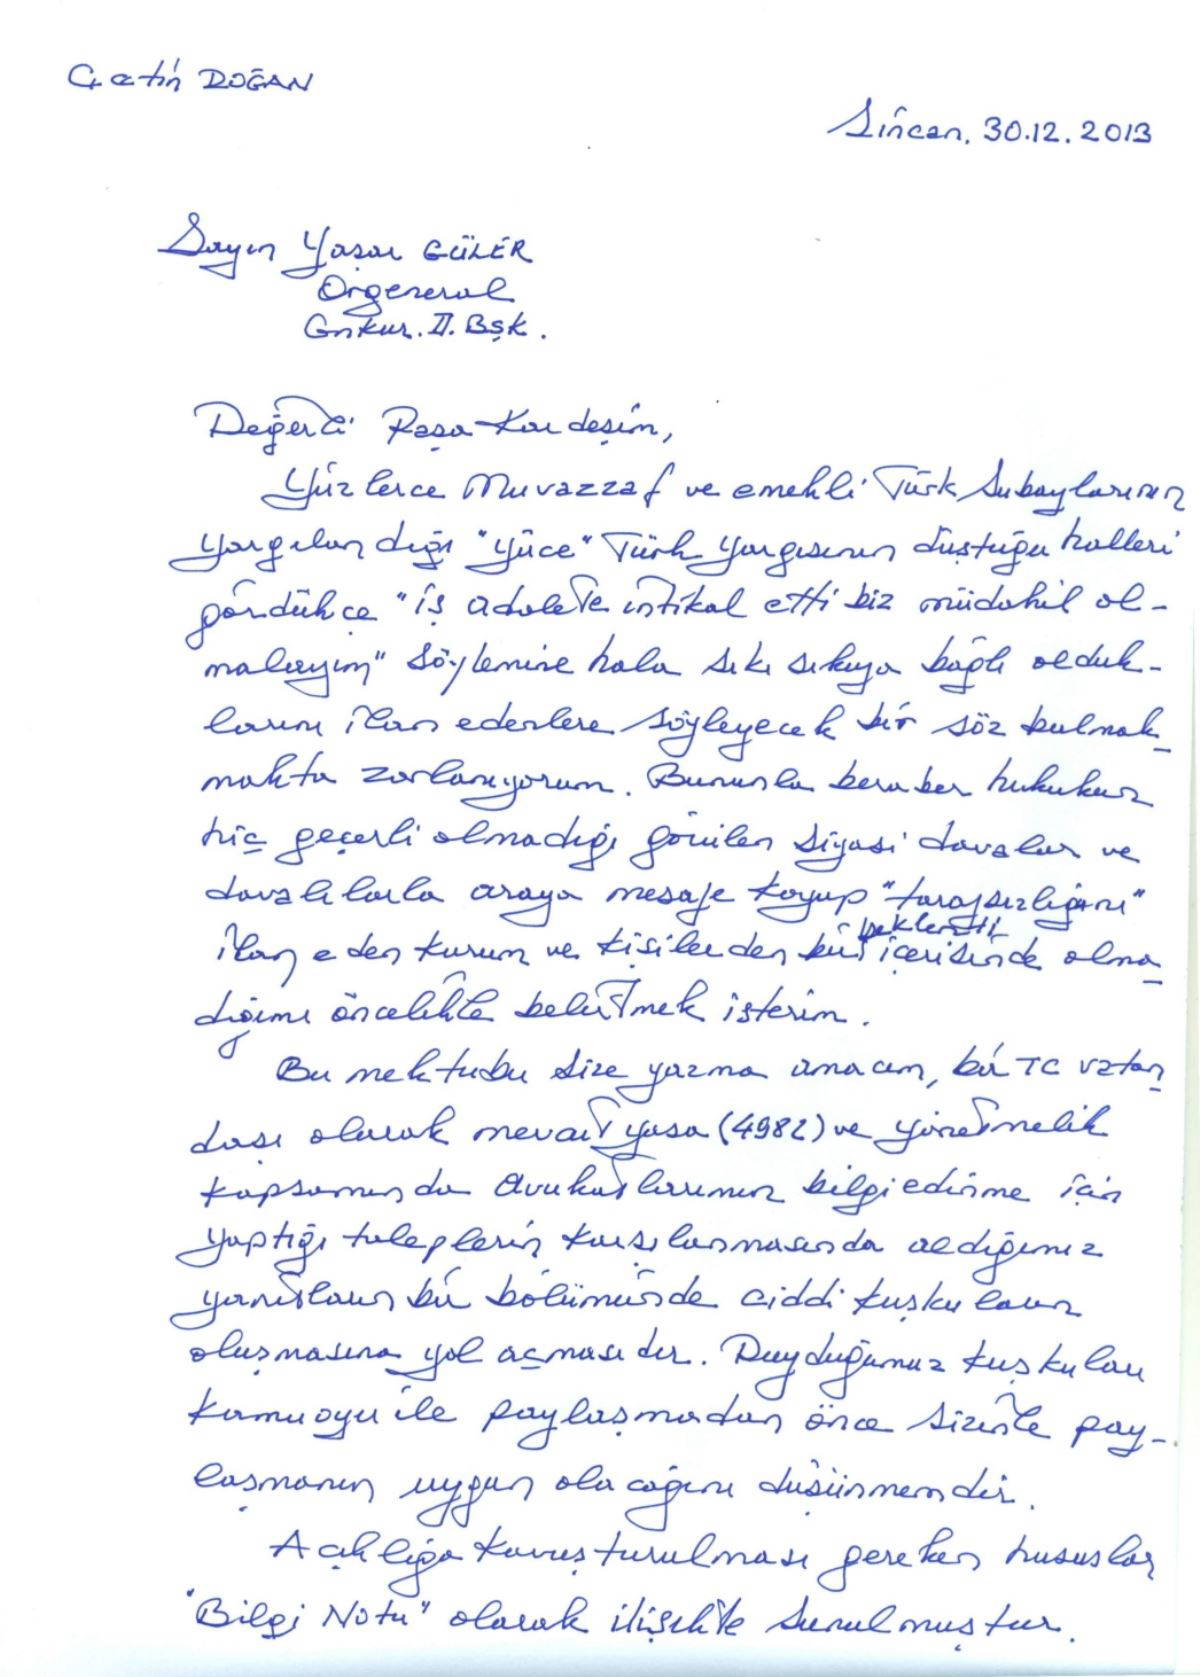 Çetin DOĞAN
Sincan, 30.12.2013
Sayın Yaşar GÜLER
Orgeneral
Gnkur. II. Bşk.
Değerli Paşa Kardeşim,
Yüzlerce Muvazzaf ve emekli Türk Subaylarının
yargılandığı "yüce" Türk Yargısının düştüğü halleri
gördükçe "iş adalete intikal etti biz müdahil ol-
malayım" söylemine hala sıkı sıkıya bağlı olduk-
larını ilan edenlere söyleyecek bir söz bulmak-
makta zorlanıyorum. Bununla beraber hukukun
hiç geçerli olmadığı görülen siyasi davalar ve
davalılarla araya mesafe koyup "tarafsızlığını"
ilan eden kurum ve kişilerden bir beklenti içerisinde olma-
dığımı öncelikle belirtmek isterim.
Bu mektubu size yazma amacım, bir TC vatan-
daşı olarak mevcut yasa (4982) ve yönetmelik
kapsamında Avukatlarımın bilgi edinme için
yaptığı taleplerin karşılanmasında aldığımız
yanıtların bir bölümünde ciddi kuşkuların
oluşmasına yol açmasıdır. Duyduğumuz kuşkuları
kamuoyu ile paylaşmadan önce sizinle pay-
laşmanın uygun olacağını düşünmemdir.
Açıklığa kavuşturulması gereken hususlar
"Bilgi Notu" olarak ilişikte sunulmuştur.